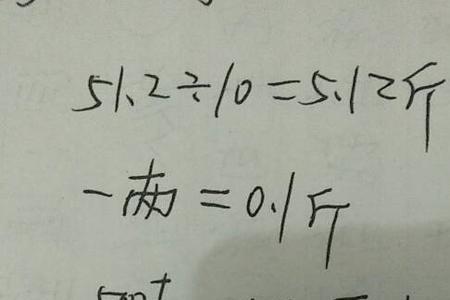 51.2÷10=5.12斤
一两=0.1斤